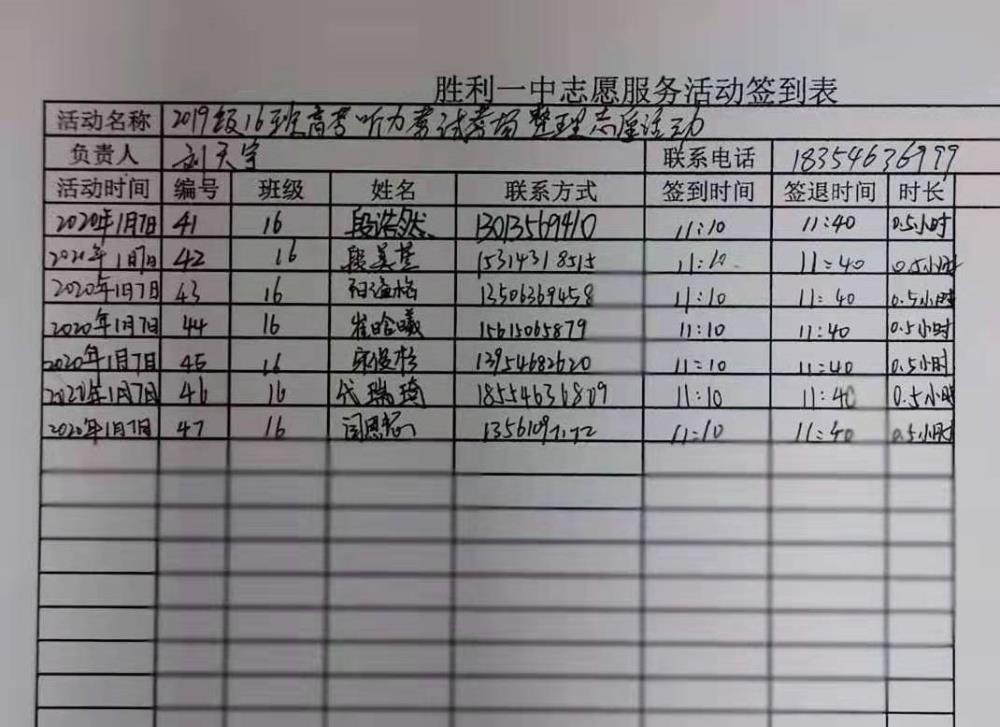 胜利一中志愿服务活动签到表
活动名称 2019级16班高考听力考试考场整理志愿活动
负责人 刘天宇 联系电话 18354636999
活动时间 编号 班级 姓名 联系方式 签到时间 签退时间 时长
2020年1月7日 41 16 段浩然 13013569410 11:10 11:40 0.5小时
2020年1月7日 42 16 段美莹 15314318515 11:10 11:40 0.5小时
2020年1月7日 43 16 13506369458 11:10 11:40 0.5小时
2020年1月7日 44 16 崔晗曦 15615065879 11:10 11:40 0.5小时
2020年1月7日 45 16 宋俊杉 13954682620 11:10 11:40 0.5小时
2020年1月7日 46 16 代瑞琦 18554636809 11:10 11:40 0.5小时
2020年1月7日 47 16 11:10 11:40 0.5小时